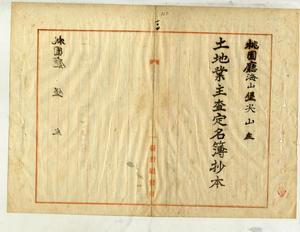 桃園廳海山堡尖山庄
土地業主查定名簿抄本
桃園廳 堡 庄